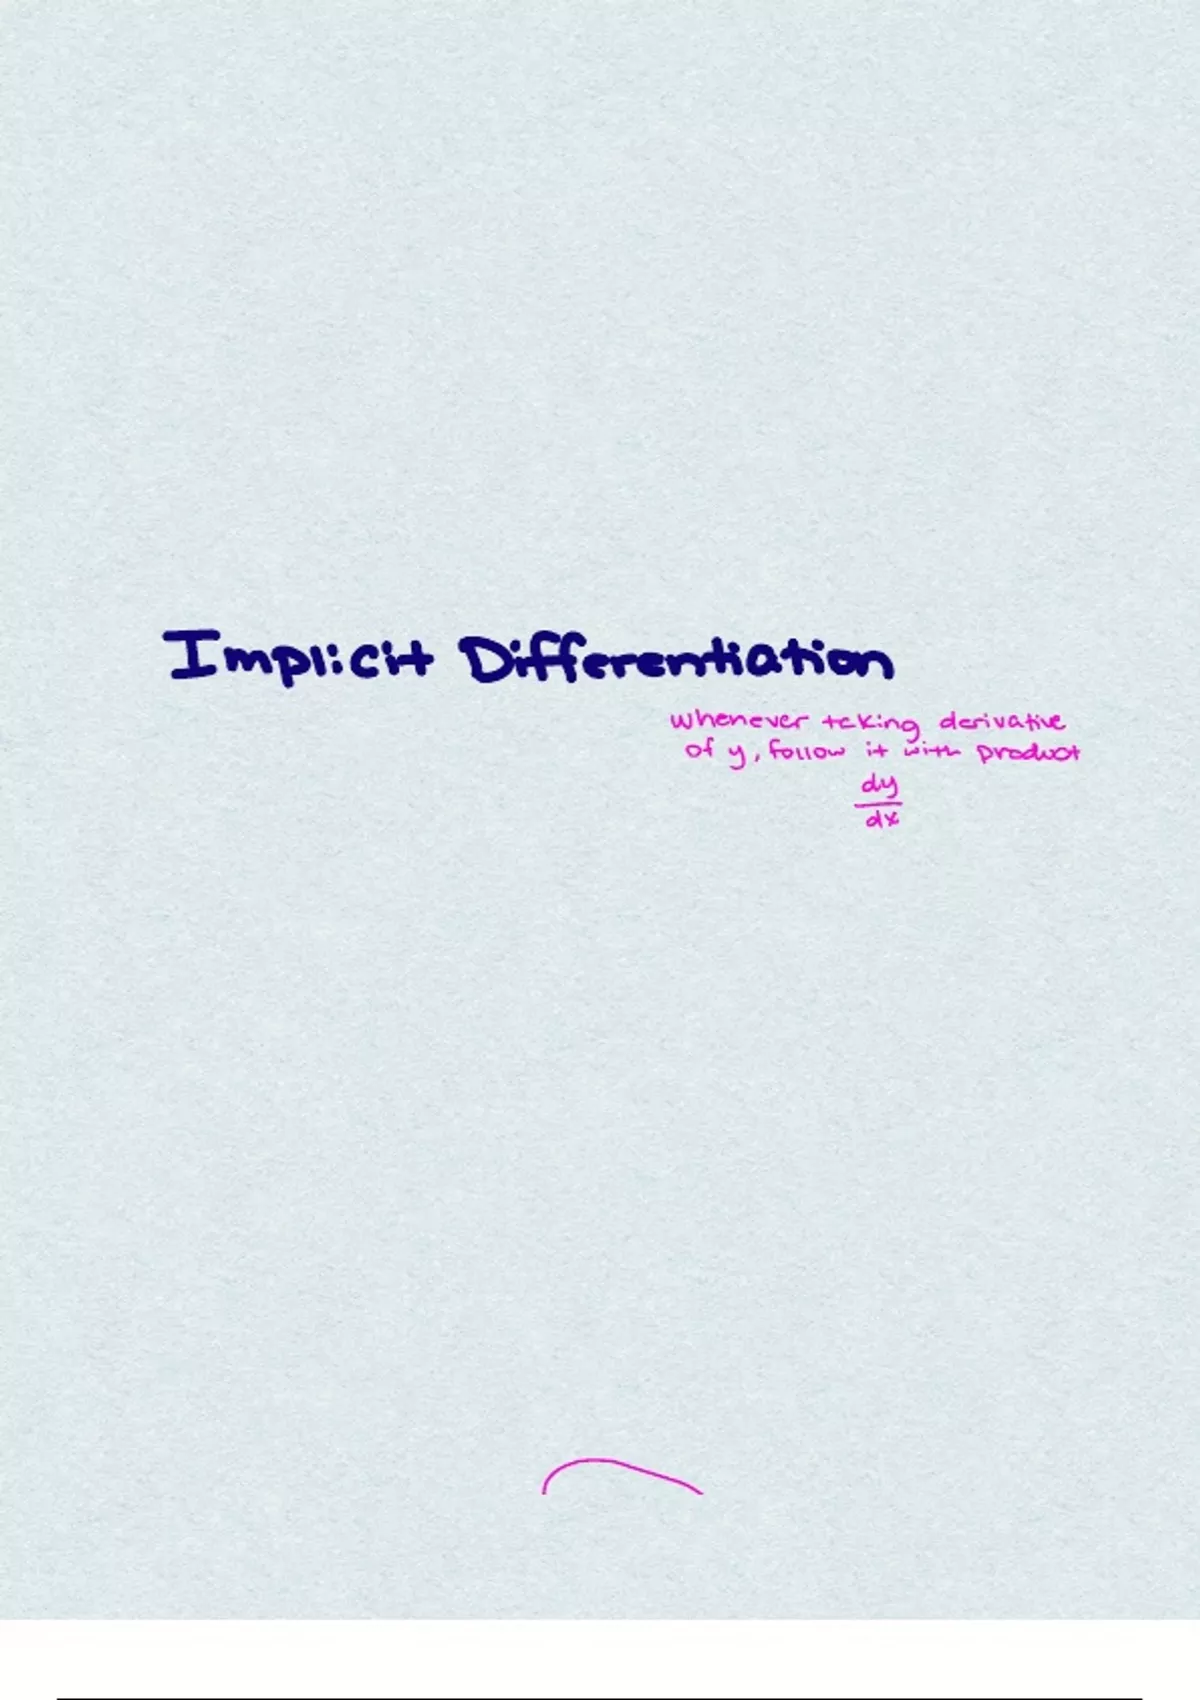 Implicit Differentiation
whenever taking derivative
of y, follow it with product
dy
dx